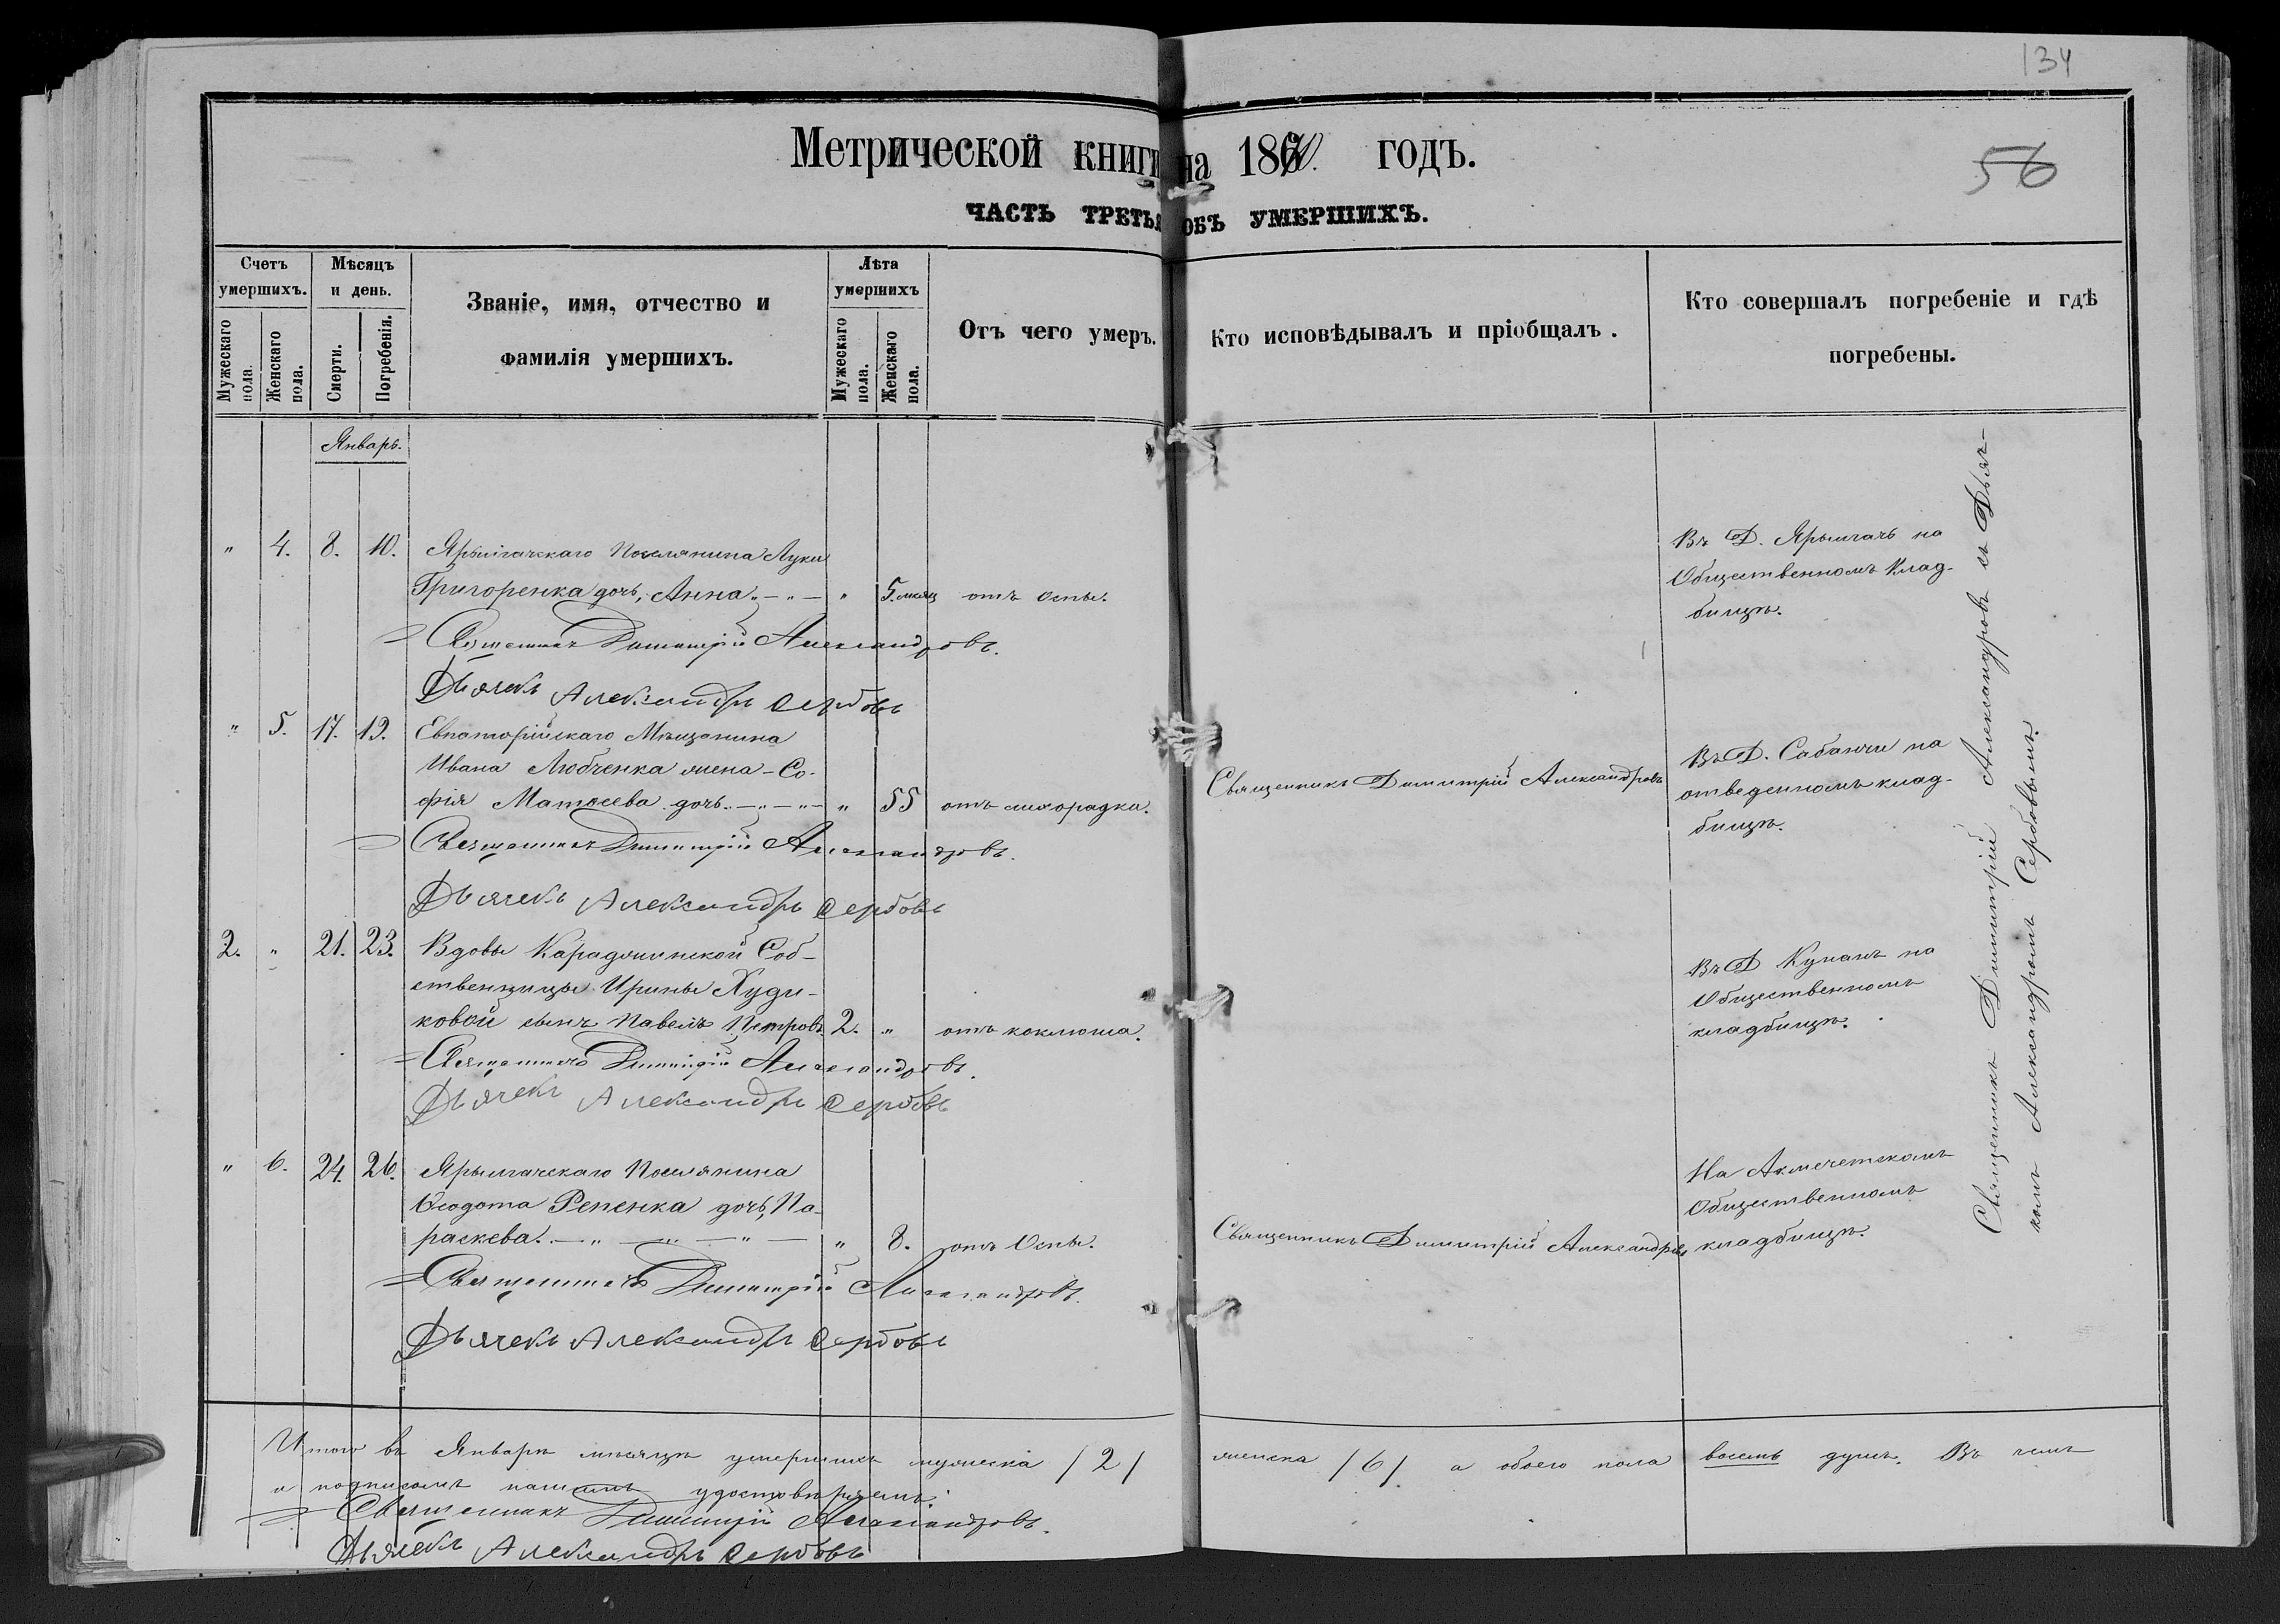 134
Метрической книги на 1870. годъ.
56
ЧАСТЬ ТРЕТЬЯ ОБЪ УМЕРШИХЪ.
Счетъ умершихъ.
Мужескаго пола.
Женскаго пола.
Мѣсяцъ и день.
Смерти.
Погребенія.
Званіе, имя, отчество и
фамилія умершихъ.
Лѣта умершихъ
Мужескаго пола.
Женскаго пола.
Отъ чего умеръ.
Кто исповѣдывалъ и пріобщалъ.
Кто совершалъ погребеніе и гдѣ
погребены.
Январь.
" 4. 8. 10. Ярылгачскаго Поселянина Луки
Григоренка дочь, Анна " — " — " 5. мѣсяц отъ оспы.
Въ Д. Ярылгачъ на
Общественномъ Клад-
бищѣ.
Священникъ Димитрій Александровъ.
Дьячекъ Александръ Сербовъ
" 5. 17. 19. Евпаторійскаго Мѣщанина
Ивана Любченка жена - Со-
фія Матѳеева дочь. — " — " — " 55 отъ лихорадки.
Священникъ Димитрій Александровъ
Въ Д. Сабанчи на
отведенномъ клад-
бищѣ.
Священникъ Димитрій Александровъ.
Дьячекъ Александръ Сербовъ
2. " 21. 23. Вдовы Караджинской Соб-
ственницы Ирины Худи-
ковой сынъ Павелъ Петровъ. 2. " отъ коклюша.
Въ Д Кунанъ на
Общественномъ
кладбищѣ.
Священникъ Димитрій Александровъ.
Дьячекъ Александръ Сербовъ
" 6. 24. 26. Ярылгачскаго Поселянина
Ѳеодота Репенка дочь, Па-
раскева. — " — " — " — " 8. отъ Оспы.
Священникъ Димитрій Александровъ
На Акмечетскомъ
Общественномъ
кладбищѣ.
Священникъ Димитрій Александровъ.
Дьячекъ Александръ Сербовъ
Священникъ Димитрій Александровъ съ Дьяч-
комъ Александромъ Сербовымъ.
Итого въ Январѣ мѣсяцѣ умершихъ мужеска /2/ женска /6/ а обоего пола восемь душъ. Въ чемъ
и подписомъ нашимъ удостовѣряемъ:
Священникъ Димитрій Александровъ.
Дьячекъ Александръ Сербовъ